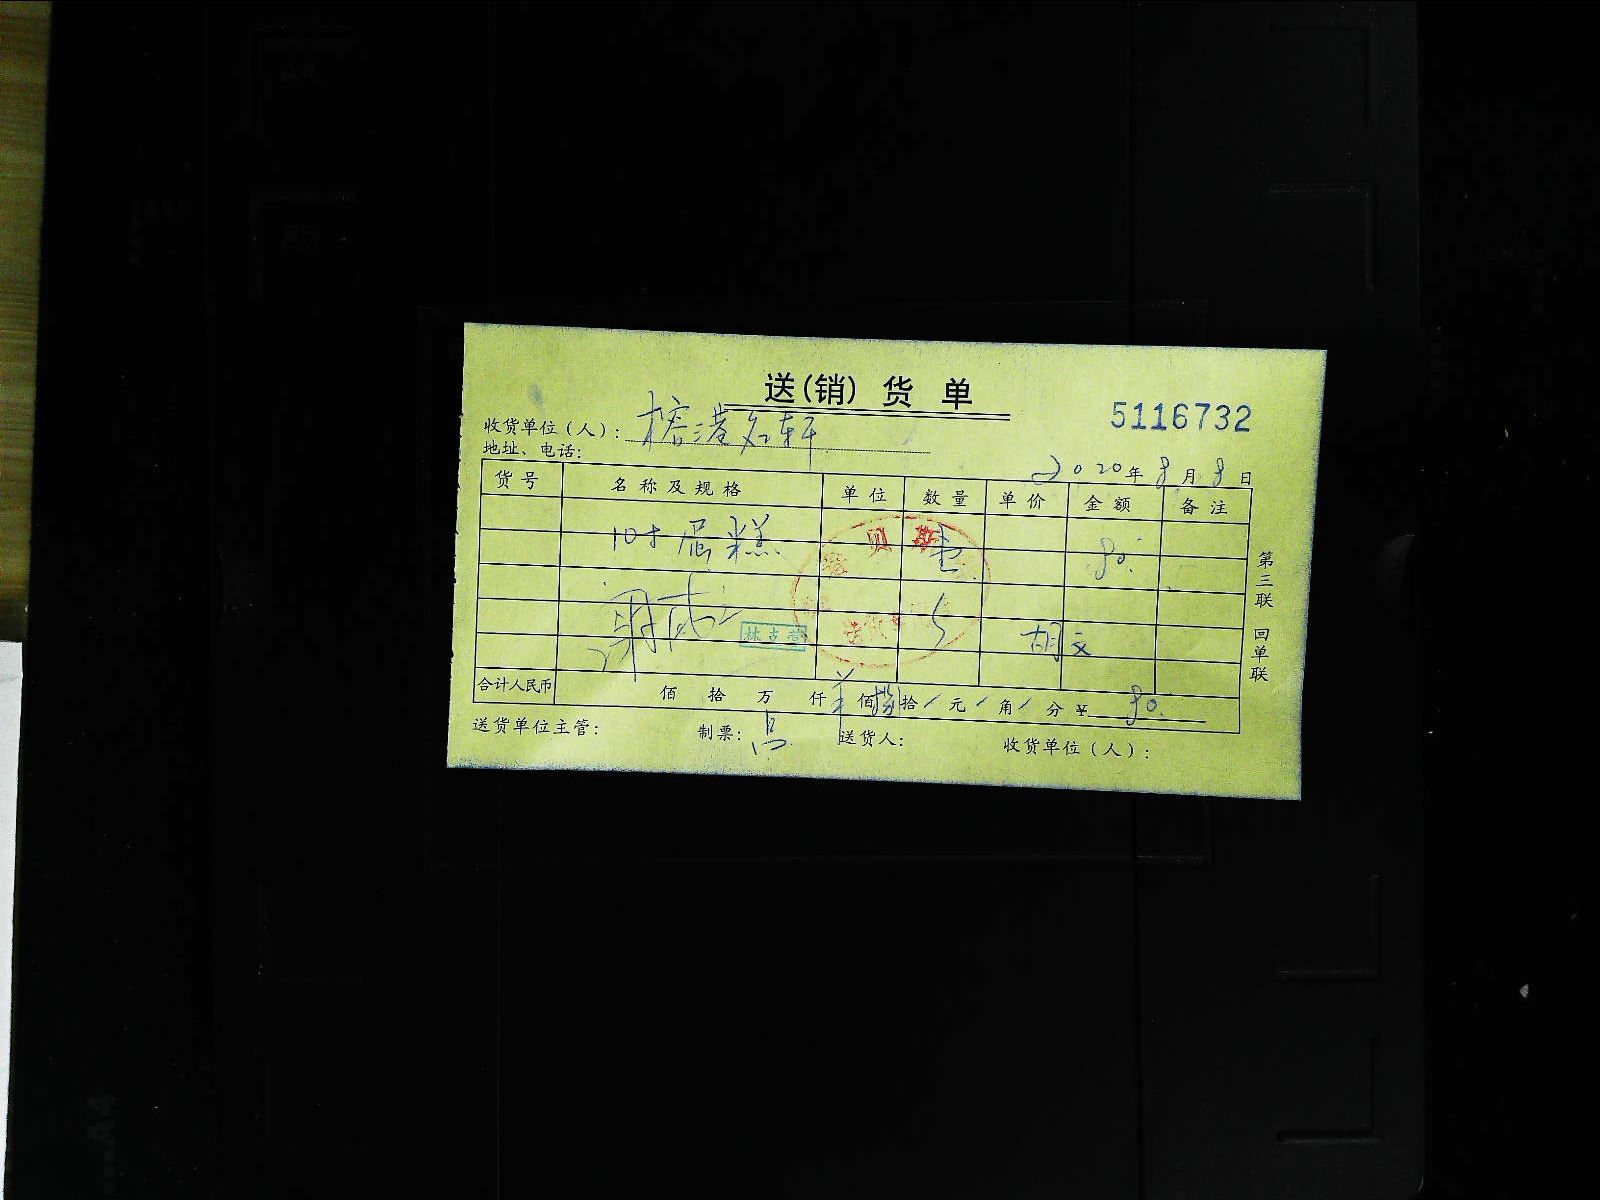 送(销)货单
5116732
收货单位(人): 榕港名轩
地址、电话:
2020年8月8日
货号 名称及规格 单位 数量 单价 金额 备注
10寸蛋糕 80.
林志
胡文
合计人民币 佰 拾 万 仟 佰 捌拾 元 角 分 ¥ 80.
送货单位主管: 制票: 送货人: 收货单位(人):
第三联 回单联
A4
A5
A4